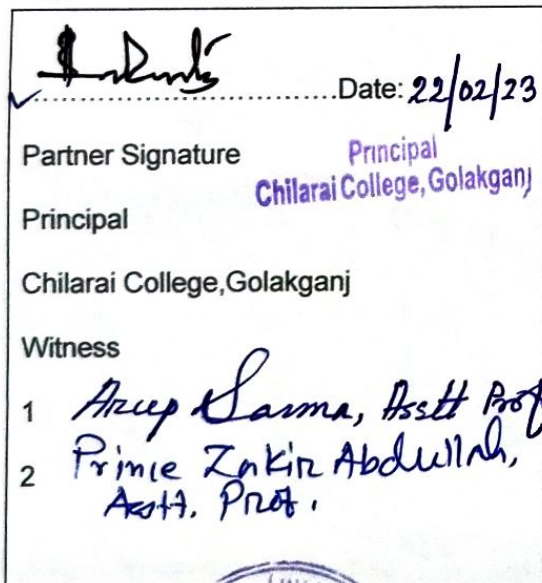 Date: 22/02/23
Partner Signature
Principal
Chilarai College, Golakganj
Principal
Chilarai College,Golakganj
Witness
1 Arup Sarma, Asstt Prof
2 Prince Zakir Abdullah,
Asstt. Prof.